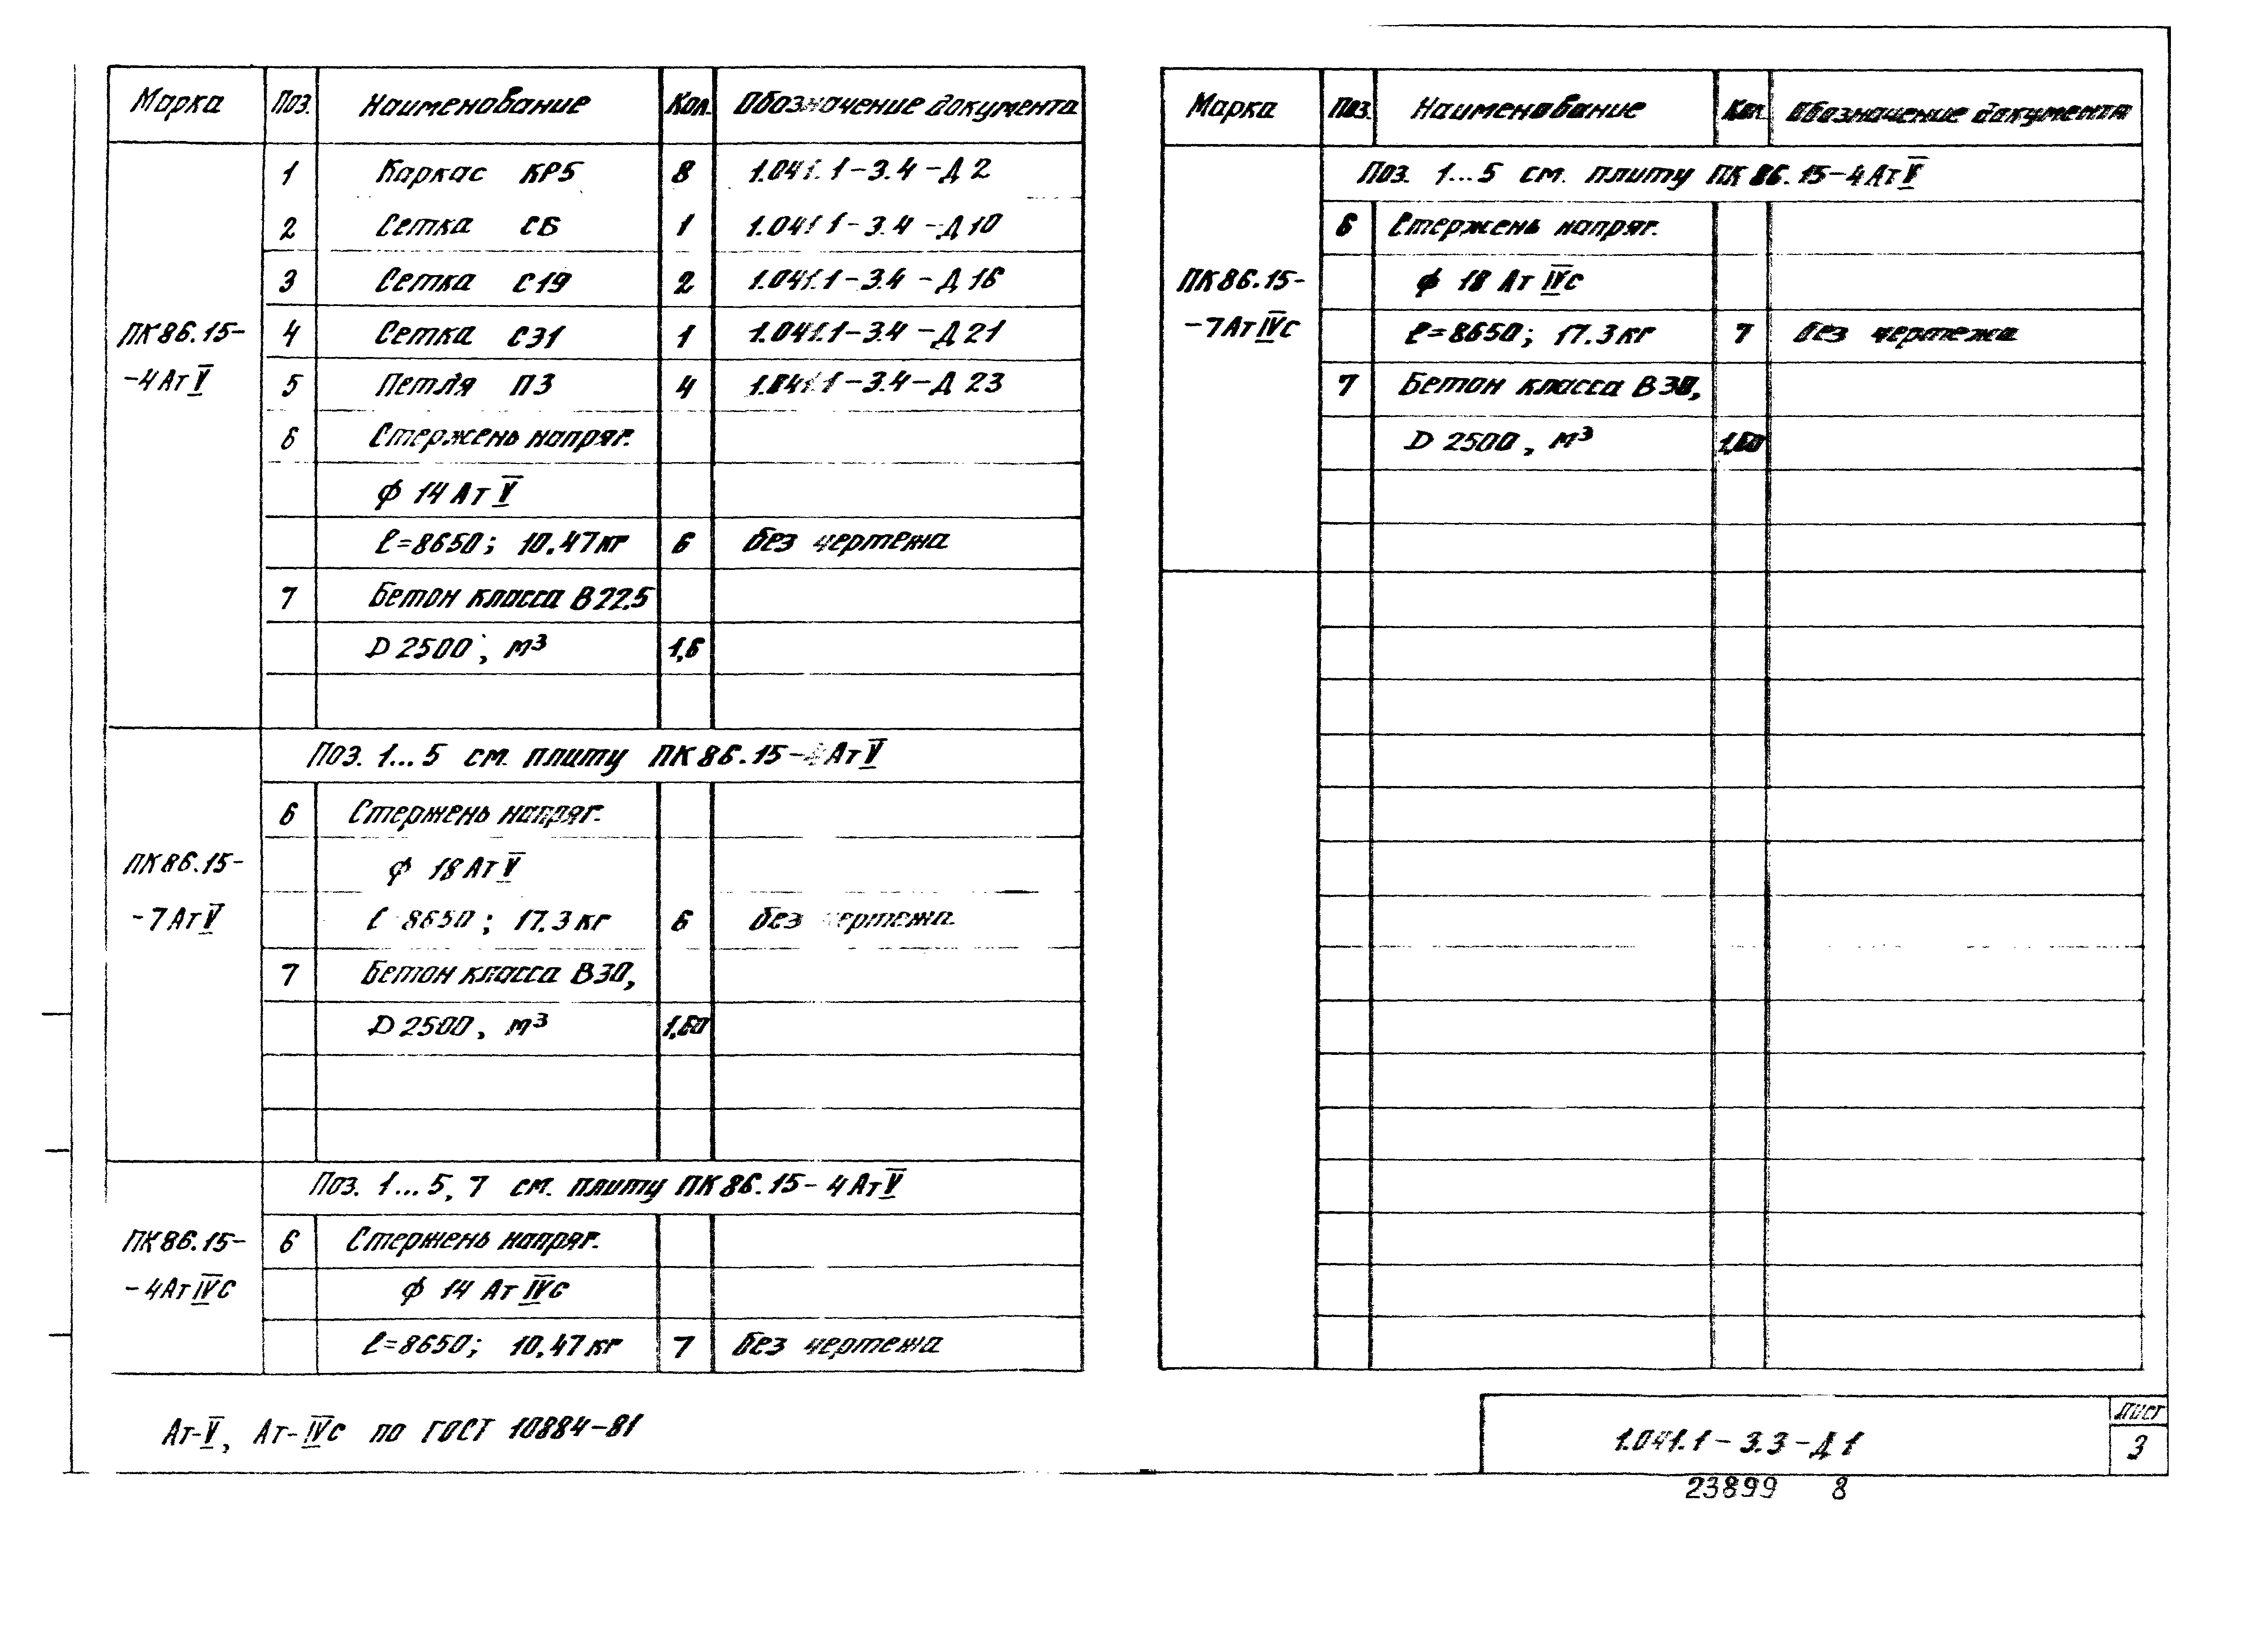 Марка Поз. Наименование Кол. Обозначение документа
ПК86.15-
-4АтV
1 Каркас КР5 8 1.041.1-3.4-Д2
2 Сетка С6 1 1.041.1-3.4-Д10
3 Сетка С19 2 1.041.1-3.4-Д16
4 Сетка С31 1 1.041.1-3.4-Д21
5 Петля П3 4 1.041.1-3.4-Д23
6 Стержень напряг.
ф 14 АтV
ℓ=8650; 10.47кг 6 без чертежа
7 Бетон класса В22.5
D 2500, м³ 1,6
Поз. 1...5 см. плиту ПК86.15-4АтV
ПК86.15-
-7АтV
6 Стержень напряг.
ф 18АтV
ℓ 8650; 17.3кг 6 без чертежа
7 Бетон класса В30,
D 2500, м³ 1,60
Поз. 1...5, 7 см. плиту ПК86.15-4АтV
ПК86.15-
-4АтIVС
6 Стержень напряг.
ф 14 АтIVС
ℓ=8650; 10.47кг 7 без чертежа
Ат-V, Ат-IVС по ГОСТ 10884-81
Марка Поз. Наименование Кол. Обозначение документа
Поз. 1...5 см. плиту ПК86.15-4АтV
ПК86.15-
-7АтIVС
6 Стержень напряг.
ф 18 АтIVС
ℓ=8650; 17.3кг 7 без чертежа
7 Бетон класса В30,
D 2500, м³ 1,60
1.041.1-3.3-Д1
Лист
3
23899 8